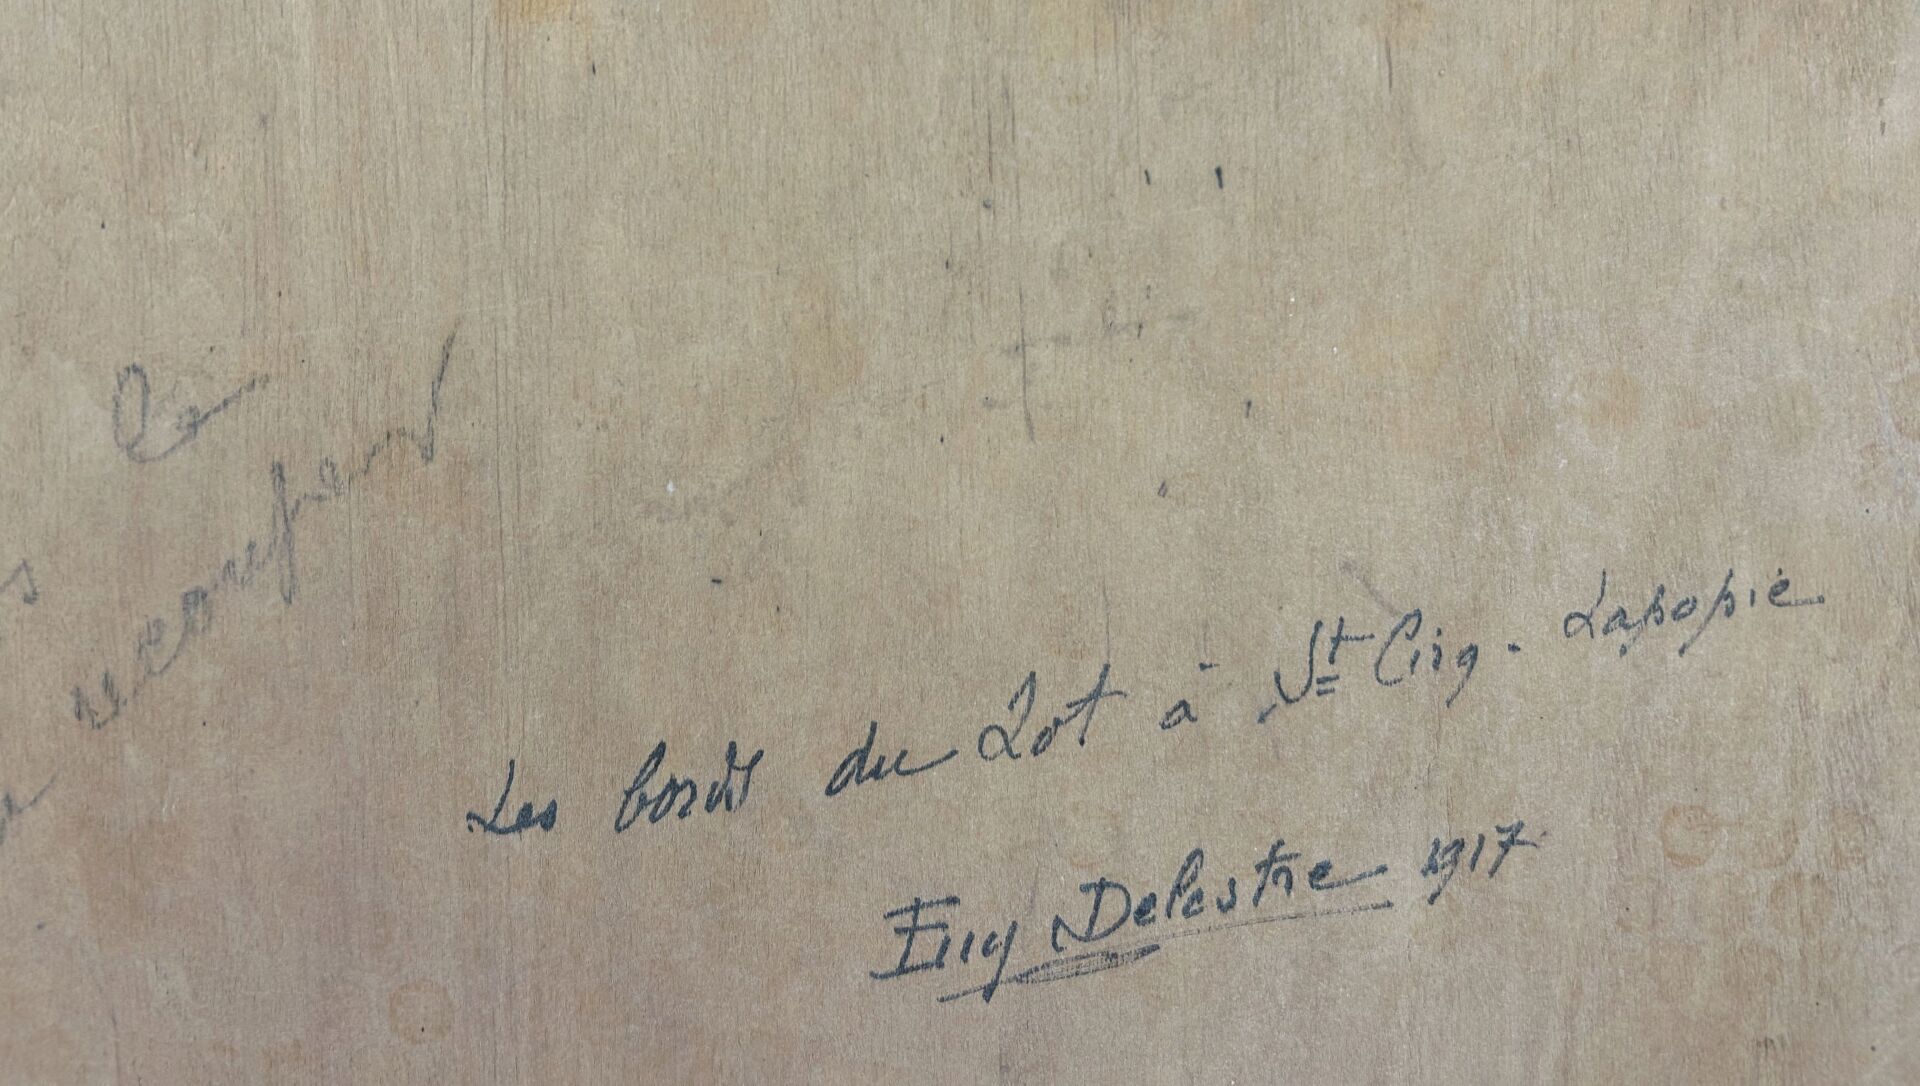 Les bords du Lot à St Cirq. Lapopie
Eug Delestre 1917